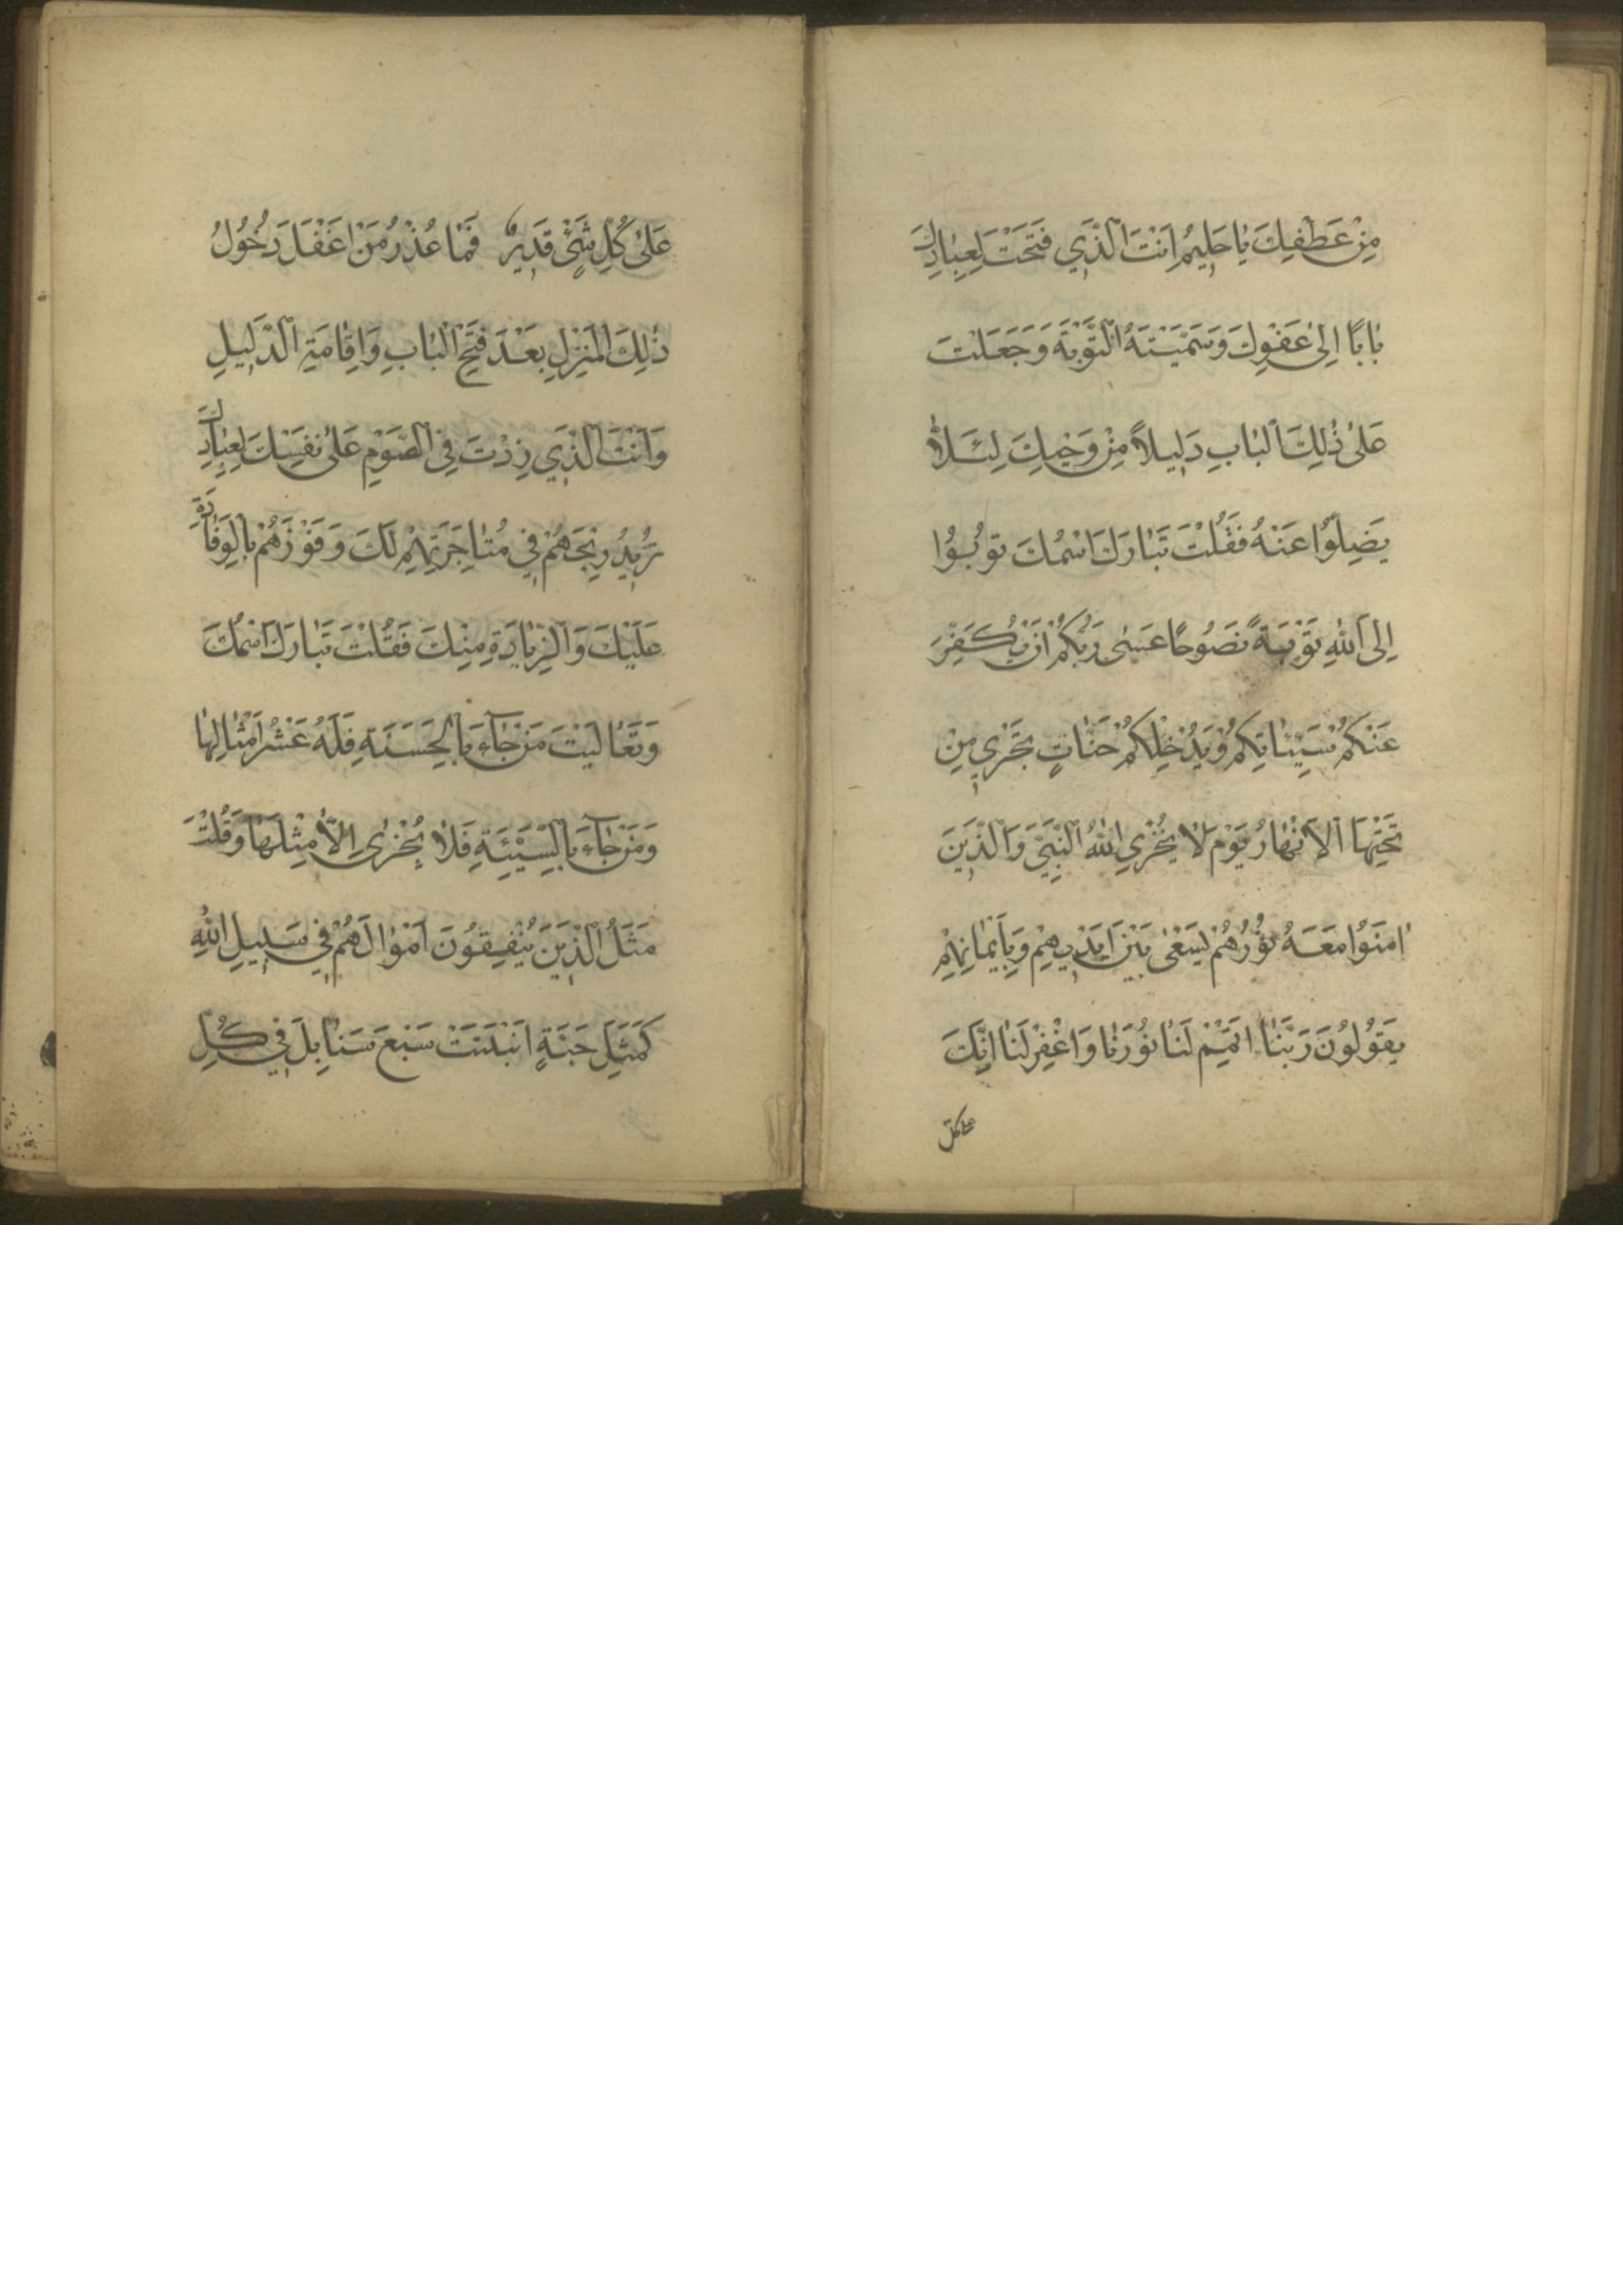 مِنْ عَطْفِكَ يَا حَلِيمُ اَنْتَ الَّذَي فَتَحْتَ لِعِبَادِكَ
بَابًا اِلىٰ عَفْوِكَ وَسَمَّيْتَهُ التَّوْبَةَ وَجَعَلْتَ
عَلىٰ ذٰلِكَ الْبَابِ دَلِيلاً مِنْ وَحْيِكَ لِئَلاَّ
يَضِلُّوا عَنْهُ فَقُلْتَ تَبَارَكَ اسْمُكَ تُوبُوُا
اِلَى اللهِ تَوْبَةً نَصُوحًا عَسىٰ رَبُّكُمْ اَنْ يُكَفِّرَ
عَنْكُمْ سَيِّئَاتِكُمْ وَيُدْخِلَكُمْ جَنَّاتٍ تَجْرِي مِنْ
تَحْتِهَا الْاَنْهَارُ يَوْمَ لَا يُخْزِي اللهُ النَّبِيَّ وَالَّذِينَ
اٰمَنُوا مَعَهُ نُورُهُمْ يَسْعىٰ بَيْنَ اَيْدِيهِمْ وَبِاَيْمَانِهِمْ
يَقُولُونَ رَبَّنَا اَتْمِمْ لَنَا نُورَنَا وَاغْفِرْ لَنَا اِنَّكَ
على كل
عَلىٰ كُلِّ شَيْءٍ قَدِيرٌ فَمَا عُذْرُ مَنْ اَغْفَلَ دُخُولَ
ذٰلِكَ الْمَنْزِلِ بَعْدَ فَتْحِ الْبَابِ وَاِقَامَةِ الدَّلِيلِ
وَاَنْتَ الَّذِي زِدْتَ فِي الصَّوْمِ عَلىٰ نَفْسِكَ لِعِبَادِكَ
تُرِيدُ رِبْحَهُمْ فِي مُتَاجَرَتِهِمْ لَكَ وَفَوْزَهُمْ بِالْوِفَادَةِ
عَلَيْكَ وَالزِّيَادَةِ مِنْكَ فَقُلْتَ تَبَارَكَ اسْمُكَ
وَتَعَالَيْتَ مَنْ جَاءَ بِالْحَسَنَةِ فَلَهُ عَشْرُ اَمْثَالِهَا
وَمَنْ جَاءَ بِالسَّيِّئَةِ فَلَا يُجْزىٰ اِلاَّ مِثْلَهَا وَقُلْتَ
مَثَلُ الَّذِينَ يُنْفِقُونَ اَمْوَالَهُمْ فِي سَبِيلِ اللهِ
كَمَثَلِ حَبَّةٍ اَنْبَتَتْ سَبْعَ سَنَابِلَ فِي كُلِّ